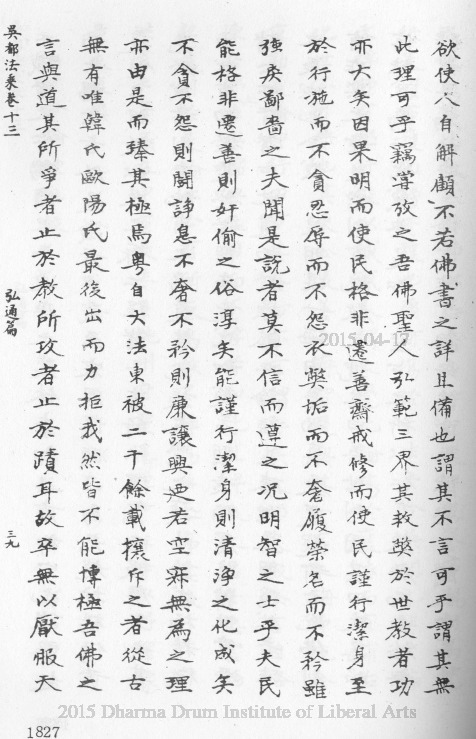 欲使人自解顧不若佛書之詳且備也謂其不言可乎謂其無
此理可乎竊嘗攷之吾佛聖人弘範三界其教獎於世教者功
亦大矣因果明而使民格非遷善齋戒修而使民謹行潔身至
於行施而不貪忍辱而不怨衣獘垢而不奢履榮名而不矜雖
強戾鄙嗇之夫聞是說者莫不信而遵之况明智之士乎夫民
能格非遷善則奸偷之俗淳矣能謹行潔身則清淨之化成矣
不貪不怨則鬪諍息不奢不矜則廉讓興廼若空寂無為之理
亦由是而臻其極焉粵自大法東被二千餘載攘斥之者從古
無有唯韓氏歐陽氏最後出而力拒我然皆不能博極吾佛之
言與道其所爭者止於教所攻者止於蹟耳故卒無以厭服天
吳都法乘卷十三
弘通篇
三九
1827
2015-04-17
2015 Dharma Drum Institute of Liberal Arts